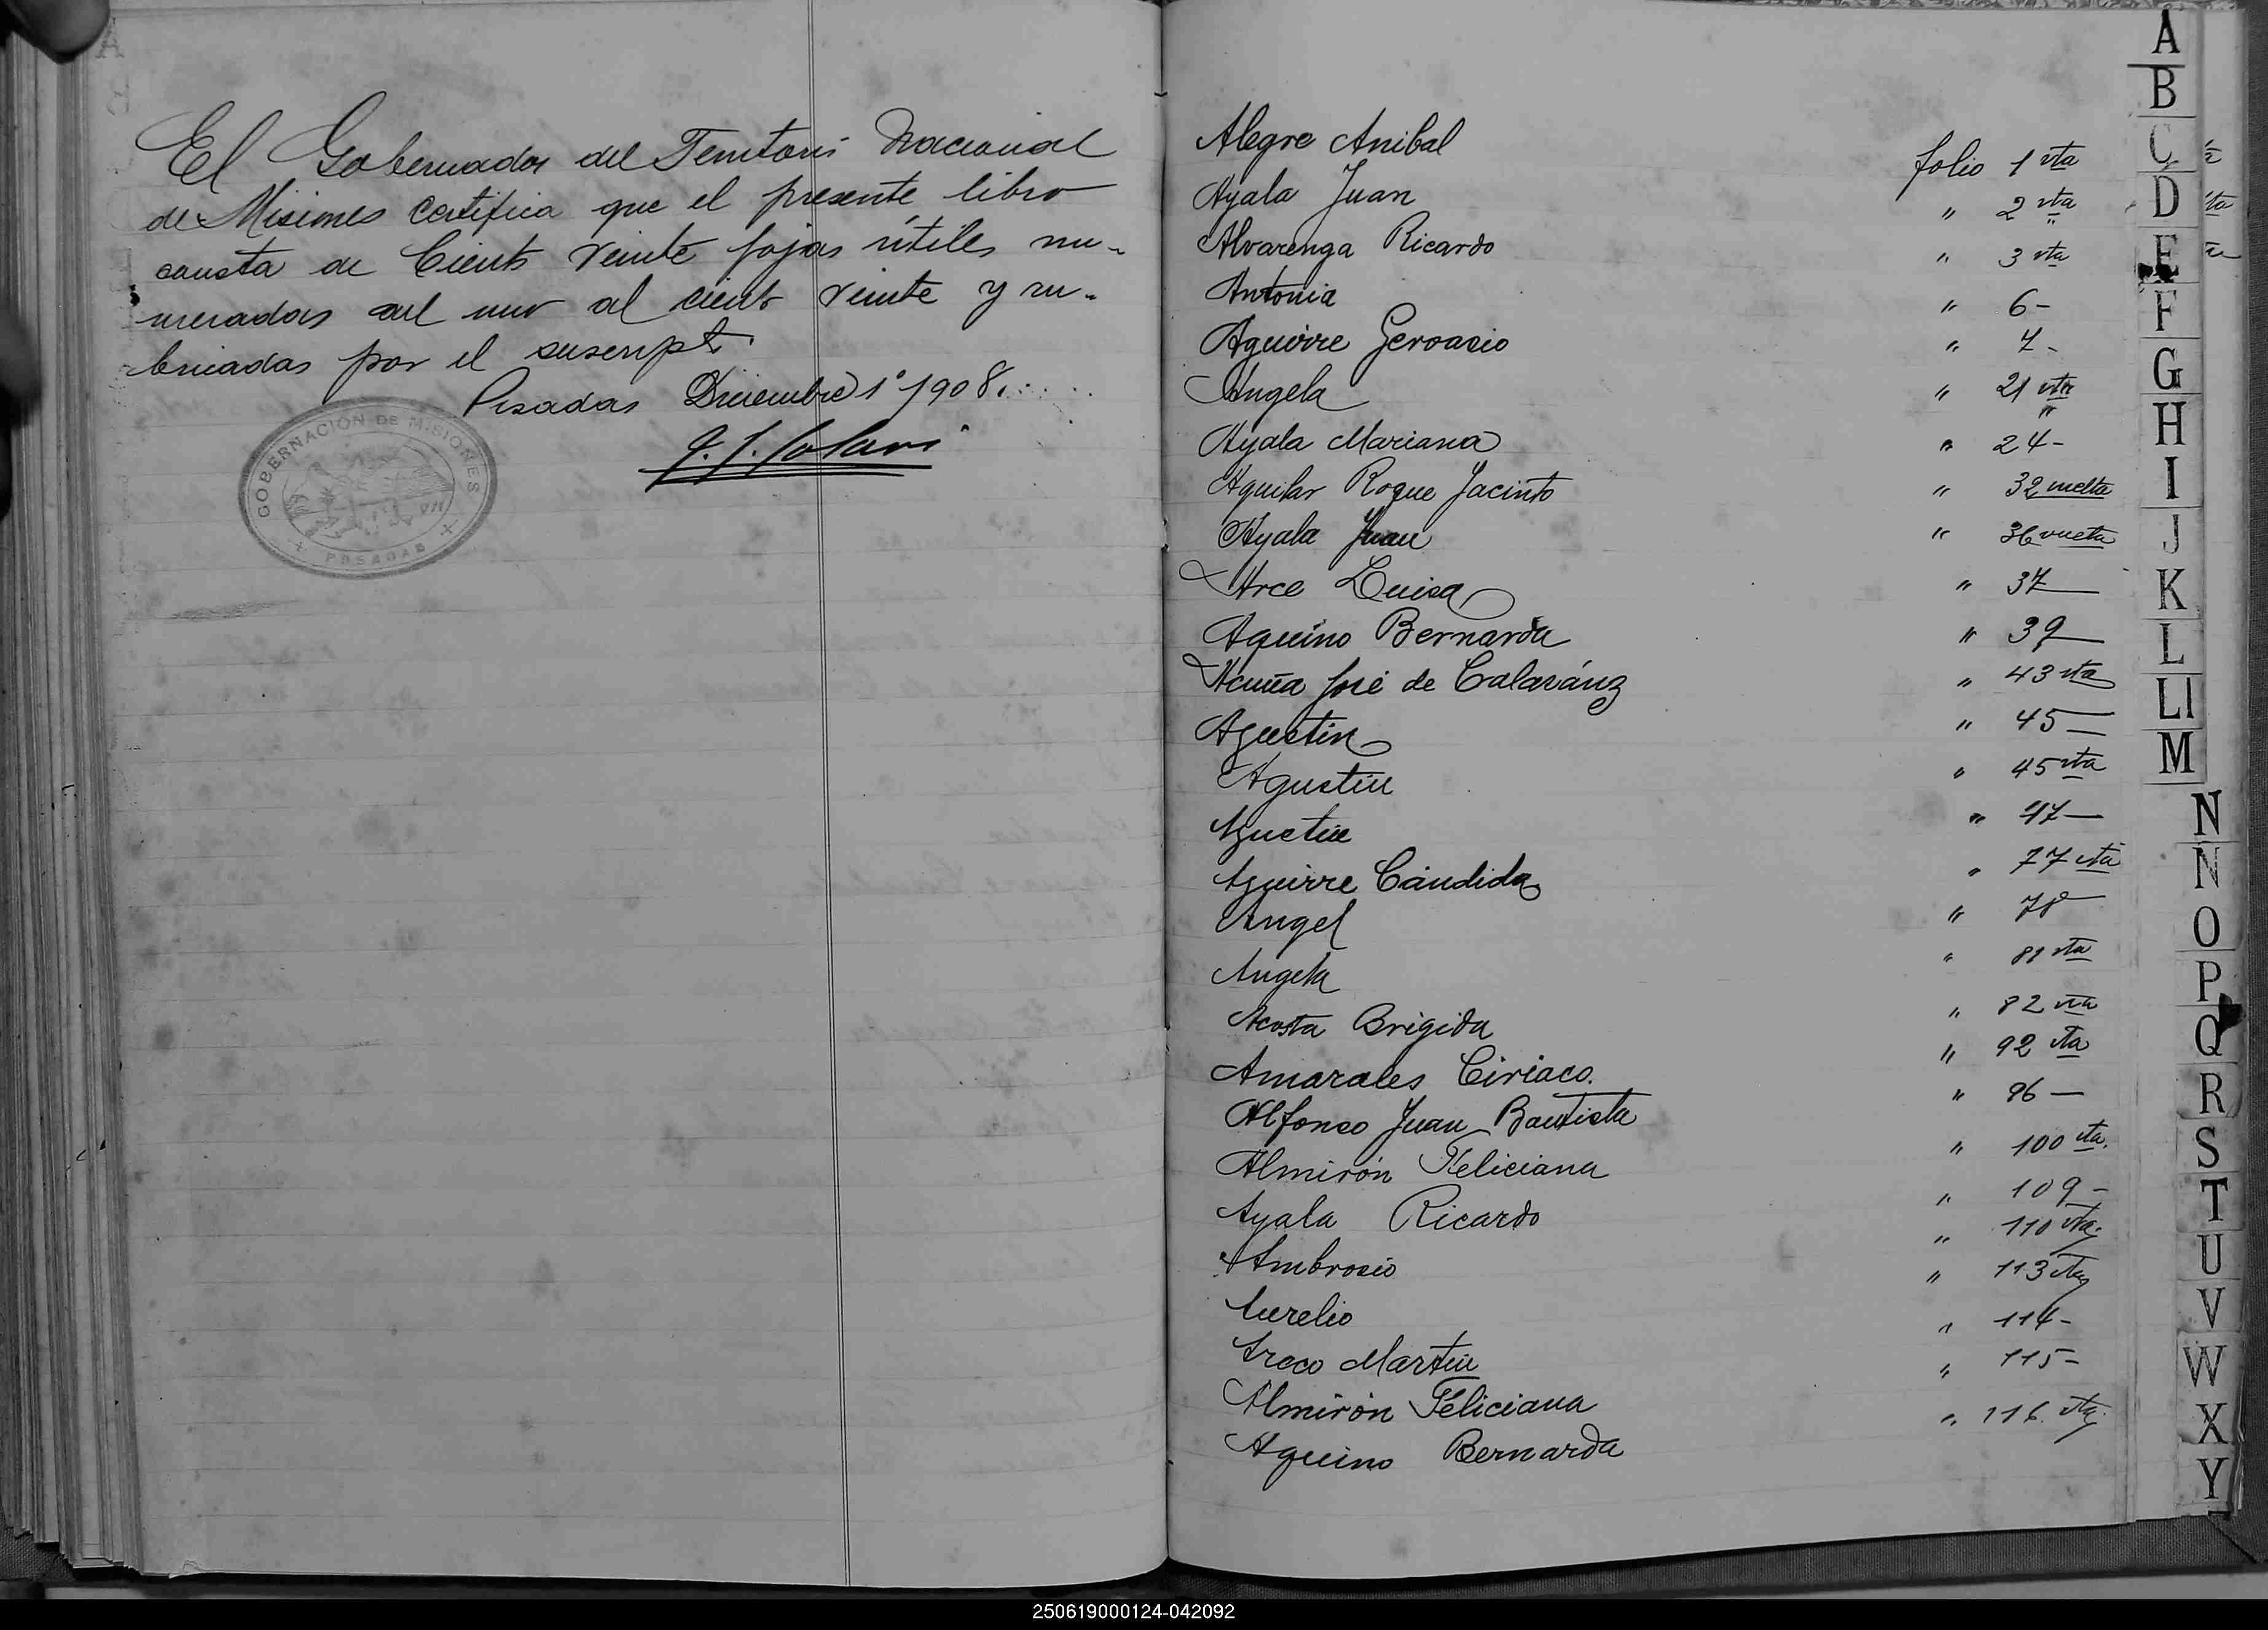 El Gobernador del Territorio Nacional
de Misiones certifica que el presente libro
consta de Ciento veinte fojas útiles nu-
meradas del uno al ciento veinte y ru-
bricadas por el suscripto.
Posadas Diciembre 1° 1908.
GOBERNACIÓN DE MISIONES
POSADAS
Alegre Anibal folio 1 vta
Ayala Juan " 2 vta
Alvarenga Ricardo " 3 vta
Antonia " 6-
Aguirre Gervasio " 7-
Angela " 21 vta
Ayala Mariana " 24-
Aguilar Roque Jacinto " 32 vuelta
Ayala Juan " 36 vuelta
Arce Luisa " 37—
Aquino Bernarda " 39—
Acuña José de Calazánz " 43 vta
Agustin " 45—
Agustin " 45 vta
Agustin " 47—
Aguirre Cándida " 77 vta
Angel " 78—
Angela " 81 vta
Acosta Brigida " 82 vta
Amarales Ciriaco. " 92 vta
Alfonso Juan Bautista " 96—
Almirón Feliciana " 100 vta.
Ayala Ricardo " 109-
Ambrosio " 110 vta.
Aurelio " 113 vta
Areco Martin " 114-
Almirón Feliciana " 115-
Aquino Bernarda " 116 vta.
A
B
C
D
E
F
G
H
I
J
K
L
Ll
M
N
Ñ
O
P
Q
R
S
T
U
V
W
X
Y
250619000124-042092